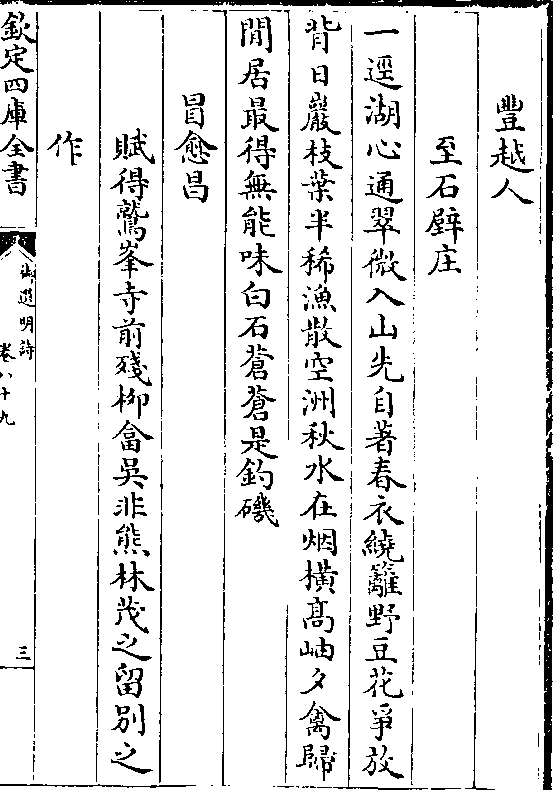 豐越人
至石壁庄
一逕湖心通翠微入山先自著春衣繞籬野豆花爭放
背日巖枝葉半稀漁散空洲秋水在烟橫髙岫夕禽歸
閒居最得無能味白石蒼蒼是釣磯
冒愈昌
賦得鷲峯寺前殘柳畣吳非熊林茂之留別之
作
欽定四庫全書
御選明詩
卷八十九
三